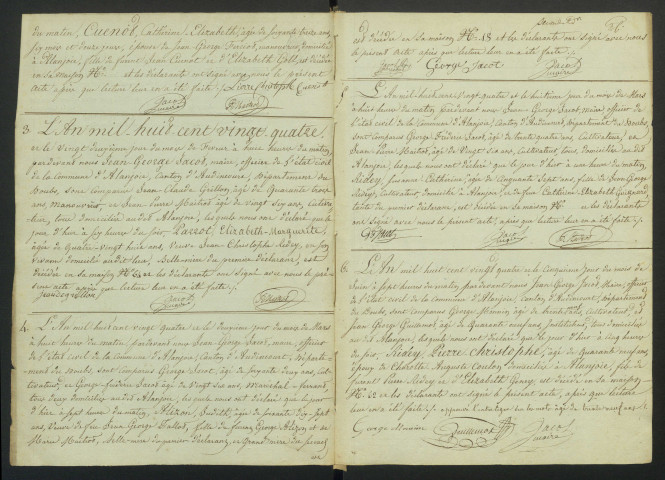 du matin, Cuenot, Catherine Elizabeth, âgée de soixante treize ans,
six mois et douze jours, épouse de Jean George manouvrier, domicilié
à Alanjoie, fille de furent Jean Cuenot et d'Elizabeth est décédée
en sa maison N° et les déclarants ont signé avec nous le présent
acte après que lecture leur en a été faite. Pierre Christophe Cuenot
Jacot
maire
3. L'An mil huit cent vingt quatre
et le vingt deuxième jour du mois de Février à huit heures du matin,
pardevant nous Jean George Jacot, maire, officier de l'état civil
de la Commune d'Alanjoie, Canton d'Audincourt, Département du
Doubs, sont comparus Jean Claude Grillon, âgé de quarante trois
ans, manouvrier et Jean Pierre Mathiot âgé de vingt six ans, cultiva-
teur, tous domiciliés audit Alanjoie, lesquels nous ont déclaré que le
jour d'hier à six heures du soir, Paccot, Elizabeth Marguerite,
âgée de quatre-vingt huit ans, veuve Jean Christophe Rédey, en son
vivant domicilié audit lieu, belle-mère du premier déclarant, est
décédée en sa maison N° 62 et les déclarants ont signé avec nous le pré-
sent acte après que lecture leur en a été faite.
Jacot
maire
4. L'An mil huit cent vingt quatre et le deuxième jour du mois de Mars
à huit heures du matin, pardevant nous Jean George Jacot, maire, officier
de l'état civil de la Commune d'Alanjoie, Canton d'Audincourt, Départe-
ment du Doubs, sont comparus George Jacot, âgé de soixante deux ans, cul-
tivateur et George Frédéric Jacot âgé de vingt six ans, maréchal-ferrant,
tous deux domiciliés audit Alanjoie, lesquels nous ont déclaré que le jour
d'hier à sept heures du matin, Judith, âgée de soixante dix sept
ans, veuve de feu Jean George fille de furent George et de
Marie Mathiot, belle-mère du premier déclarant, et Grand'mère du second
est décédée en sa maison N° 18 et les déclarants ont signé avec nous
le présent acte après que lecture leur en a été faite.
George Jacot
Jacot
maire
5. L'An mil huit cent vingt quatre et le huitième jour du mois de Mars
à huit heures du matin, pardevant nous Jean George Jacot, maire officier de
l'état civil de la Commune d'Alanjoie, Canton d'Audincourt, département du Doubs,
sont comparus George Frédéric Jacot, âgé de trente quatre ans, cultivateur, et
Jean Pierre Mathiot, âgé de vingt six ans, cultivateur, tous domiciliés audit
Alanjoie, lesquels nous ont déclaré que le jour d'hier à une heure du matin,
Rédey, Susanne Catherine, âgée de cinquante sept ans, fille de Jean George
Rédey, cultivateur, domicilié à Alanjoie, et de feue Catherine Elizabeth Guignard
tante du premier déclarant, est décédée en sa maison N° et les déclarants
ont signé avec nous le présent acte, après que lecture leur en a été faite.
Jacot
maire
6. L'An mil huit cent vingt quatre et le cinquième jour du mois de
Juin à sept heures du matin, pardevant nous Jean George Jacot Maire, officier
de l'état civil de la commune d'Alanjoie, Canton d'Audincourt, département
du Doubs, sont comparus George Mounier, âgé de trente trois ans, cultivateur, et
Jean George Guillemot, âgé de quarante neuf ans, Instituteur, tous domiciliés
audit Alanjoie, lesquels nous ont déclaré que le jour d'hier à cinq heures
du soir, Rédey, Pierre Christophe, âgé de quarante neuf ans,
époux de Charlotte Auguste Coulon, domicilié à Alanjoie, fils de
furent Pierre Rédey et d'Elizabeth est décédé en sa maison
N° 52 et les déclarants ont signé le présent acte, après que lecture
leur en a été faite.
George Mounier
Guillemot
Jacot
maire